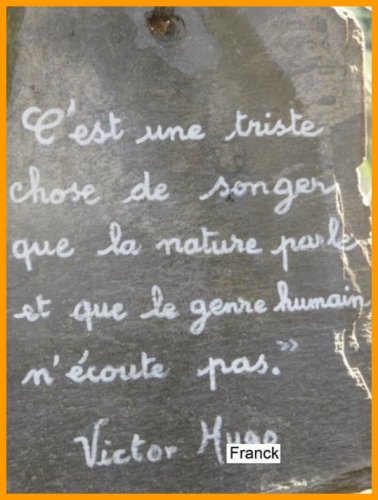 C'est une triste
chose de songer
que la nature parle
et que le genre humain
n'écoute pas.”
Victor Hugo
Franck